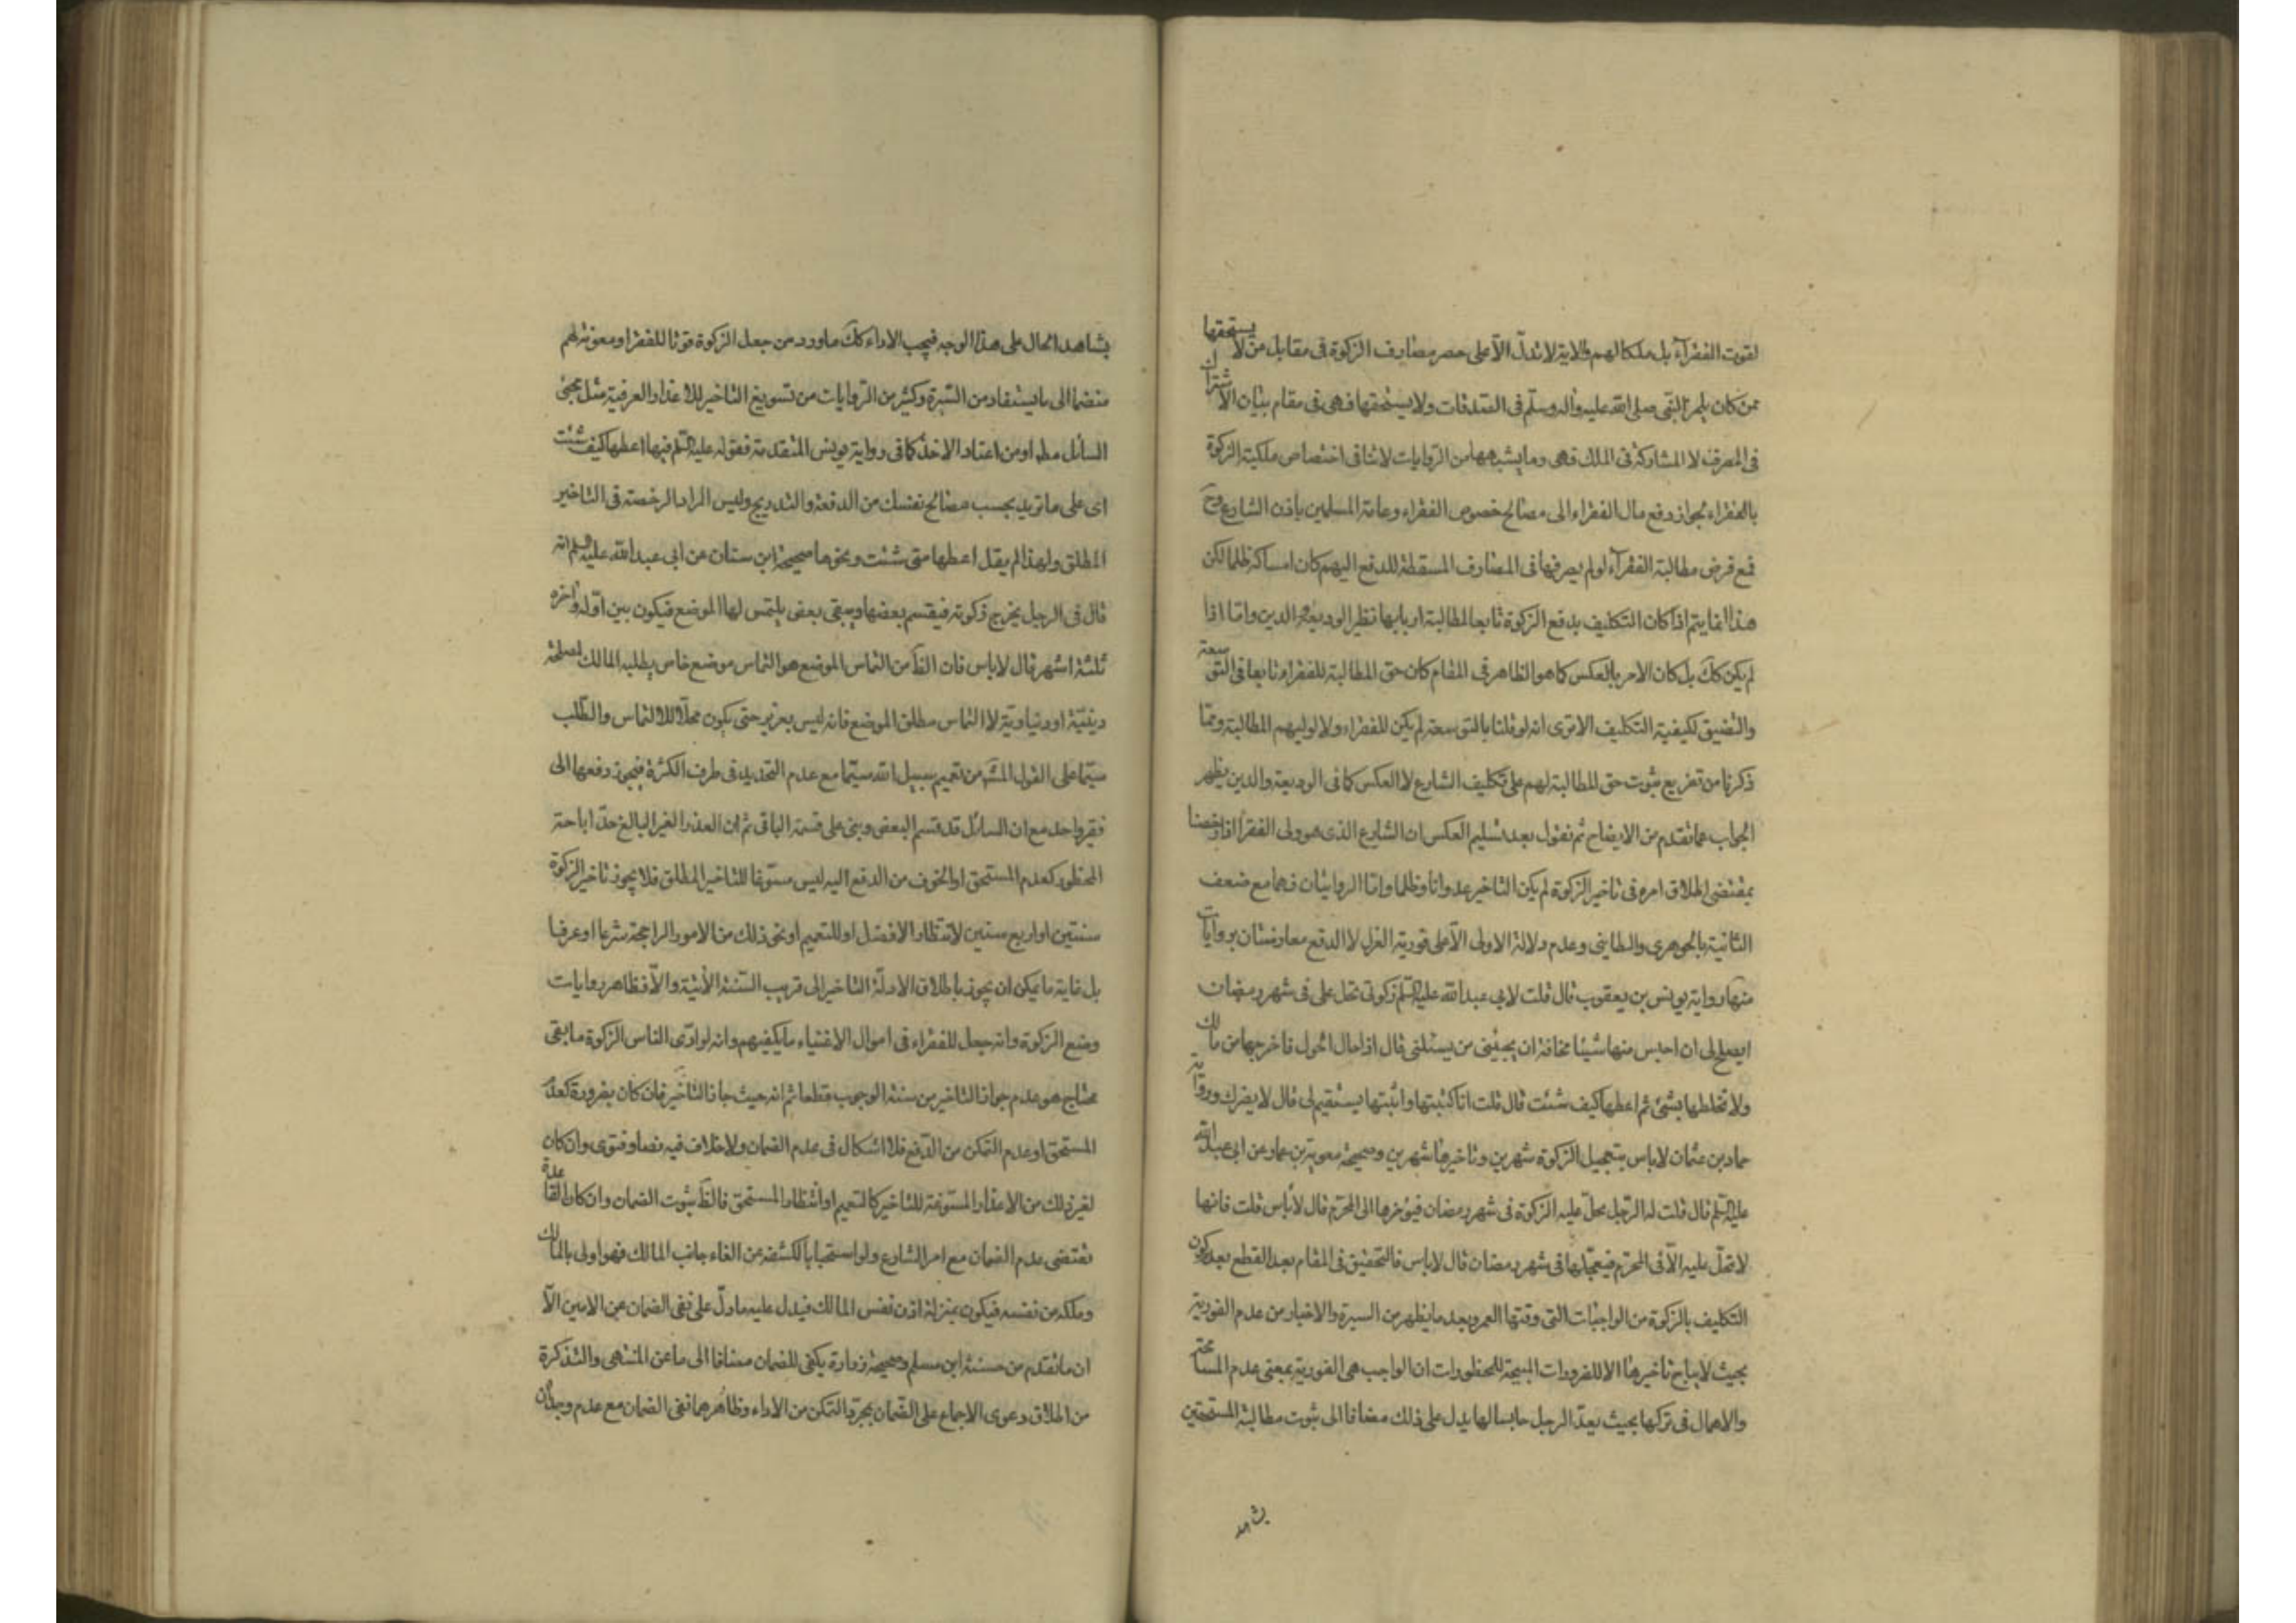 لقوت الفقرآء بل ملكا لهم والاية لا تدلّ الّا على حصر مصارف الزكوة فى مقابل من لا يستحقها
ممن كان يلمز النّبى صلى الله عليه وآله وسلّم فى الصّدقات ولا يستحقها فهى فى مقام بيان الاشتراك
فى المصرف لا المشاركة فى الملك فهى وما يشبهها من الرّوايات لا تنافى اختصاص ملكية الزكوة
بالفقراء لجواز دفع مال الفقراء الى مصالح خصوص الفقراء وعامة المسلمين باذن الشارع وح
فمع فرض مطالبة الفقرآء لو لم يصرفها فى المصارف المسقطة للدفع اليهم كان امساكه ظلما لكن
هذا انما يتم اذا كان التكليف بدفع الزكوة تابعا لمطالبة اربابها نظير الوديعة والدين وامّا اذا
لم يكن كك بل كان الامر بالعكس كما هو الظاهر فى المقام كان حق المطالبة للفقراء تابعا فى التوسعة
والتضيق لكيفية التكليف الا ترى انه لو قلنا بالتوسعة لم يكن للفقراء ولا لوليهم المطالبة وممّا
ذكرنا من تفريع ثبوت حق المطالبة لهم على تكليف الشارع لا العكس كما فى الوديعة والدين يظهر
الجواب عما تقدم من الايضاح ثم نقول بعد تسليم العكس ان الشارع الذى هو ولى الفقرآ اذا رخصنا
بمقتضى اطلاق امره فى تاخير الزكوة لم يكن التاخير عدوانا وظلما وامّا الروايتان فهما مع ضعف
الثانية بالجوهرى والبطاينى وعدم دلالة الاولى الّا على فورية العزل لا الدفع معارضتان بروايات
منها رواية يونس بن يعقوب قال قلت لابي عبدالله عليه السّلم زكوتى تحل على فى شهر رمضان
ايصلح لى ان احبس منها شيئا مخافة ان يجيئنى من يسئلنى قال اذا حال الحول فاخرجها من مالك
ولا تخلطها بشئ ثم اعطها كيف شئت قال قلت انا كتبتها واثبتها يستقيم لى قال لا يضرك ورواية
حماد بن عثمان لا باس بتعجيل الزكوة شهرين وتاخيرها شهرين وصحيحة معوية بن عمار عن ابى عبدالله
عليه السّلم قال قلت له الرّجل يحلّ عليه الزكوة فى شهر رمضان فيؤخرها الى المحرّم قال لا باس قلت فانها
لا تحلّ عليه الّا فى المحرّم فيعجّلها فى شهر رمضان قال لا باس فالتحقيق فى المقام بعد القطع بعد كون
التكليف بالزكوة من الواجبات التى وقتها العمر وبعد ما يظهر من السيرة والاخبار من عدم الفورية
بحيث لا يباح تاخيرها الا للضرورات المبيحة للمحظورات ان الواجب هى الفورية بمعنى عدم المسامحة
والاهمال فى تركها بحيث يعدّ الرجل حابسا لها يدل على ذلك مضافا الى ثبوت مطالبة المستحقين
يشاهد
يشاهد الحال على هذا الوجه فيجب الاداء كك ما ورد من جعل الزكوة قوتا للفقرا ومعونة لهم
منضما الى ما يستفاد من السّيرة وكثير من الرّوايات من تسويغ التاخير للاعذار العرفية مثل مجئ
السائل مط او من اعتاد الاخذ كما فى رواية يونس المتقدمة فقوله عليه السّلم فيها اعطها كيف شئت
اى على ما تريد بحسب مصالح نفسك من الدفعة والتدريج وليس المراد الرخصة فى التاخير
المطلق ولهذا لم يقل اعطها متى شئت ونحوها صحيحة ابن سنان عن ابى عبدالله عليه السّلم انه
قال فى الرجل يخرج زكوته فيقسم بعضها ويبقى بعض يلتمس لها الموضع فيكون بين اوّله واخره
ثلثة اشهر قال لا باس فان الظ من التماس الموضع هو التماس موضع خاص يطلبه المالك لمصلحة
دينيّة او دنياويّة لا التماس مطلق الموضع فانه ليس بعزيز حتى يكون محلّا للالتماس والطّلب
سيّما على القول المش من تعميم سبيل الله سيّما مع عدم التحديد فى طرف الكثرة فيجوز دفعها الى
فقير واحد مع ان السائل قد قسم البعض وبنى على قسمة الباقى ثم ان العذر الغير البالغ حدّ اباحة
المحظور كعدم المستحق او الخوف من الدفع اليه ليس مسوّغا للتاخير المطلق فلا يجوز تاخير الزكوة
سنتين او اربع سنين لانتظار الافضل او للتعميم او نحو ذلك من الامور الراجحة شرعا او عرفا
بل غاية ما يمكن ان يجوز باطلاق الادلّة التاخير الى قريب السّنة الاتية والّا فظاهر روايات
وضع الزكوة وانه جعل للفقراء فى اموال الاغنياء ما يكفيهم وانه لو ادّى الناس الزكوة ما بقى
محتاج هو عدم جواز التاخير من سنة الوجوب قطعا ثم انه حيث جاز التاخير فان كان بضرورة كعدم
المستحق او عدم التمكن من الدّفع فلا اشكال فى عدم الضمان ولا خلاف فيه نصا وفتوى وان كان
لغير ذلك من الاعذار المسوّغة للتاخير كالتعميم او انتظار المستحق فالظ ثبوت الضمان وان كان القاعدة
تقتضى عدم الضمان مع امر الشارع ولو استحبابا لكشفه عن الغاء جانب المالك فهو اولى بالمالك
وملكه من نفسه فيكون بمنزلة اذن نفس المالك فيدل عليه ما دلّ على نفى الضمان عن الامين الّا
ان ما تقدم من حسنة ابن مسلم وصحيحة زرارة يكفى للضمان مضافا الى ما عن المنتهى والتذكرة
من اطلاق دعوى الاجماع على الضّمان بمجرّد التمكن من الاداء وظاهرهما نفى الضمان مع عدم وجدان